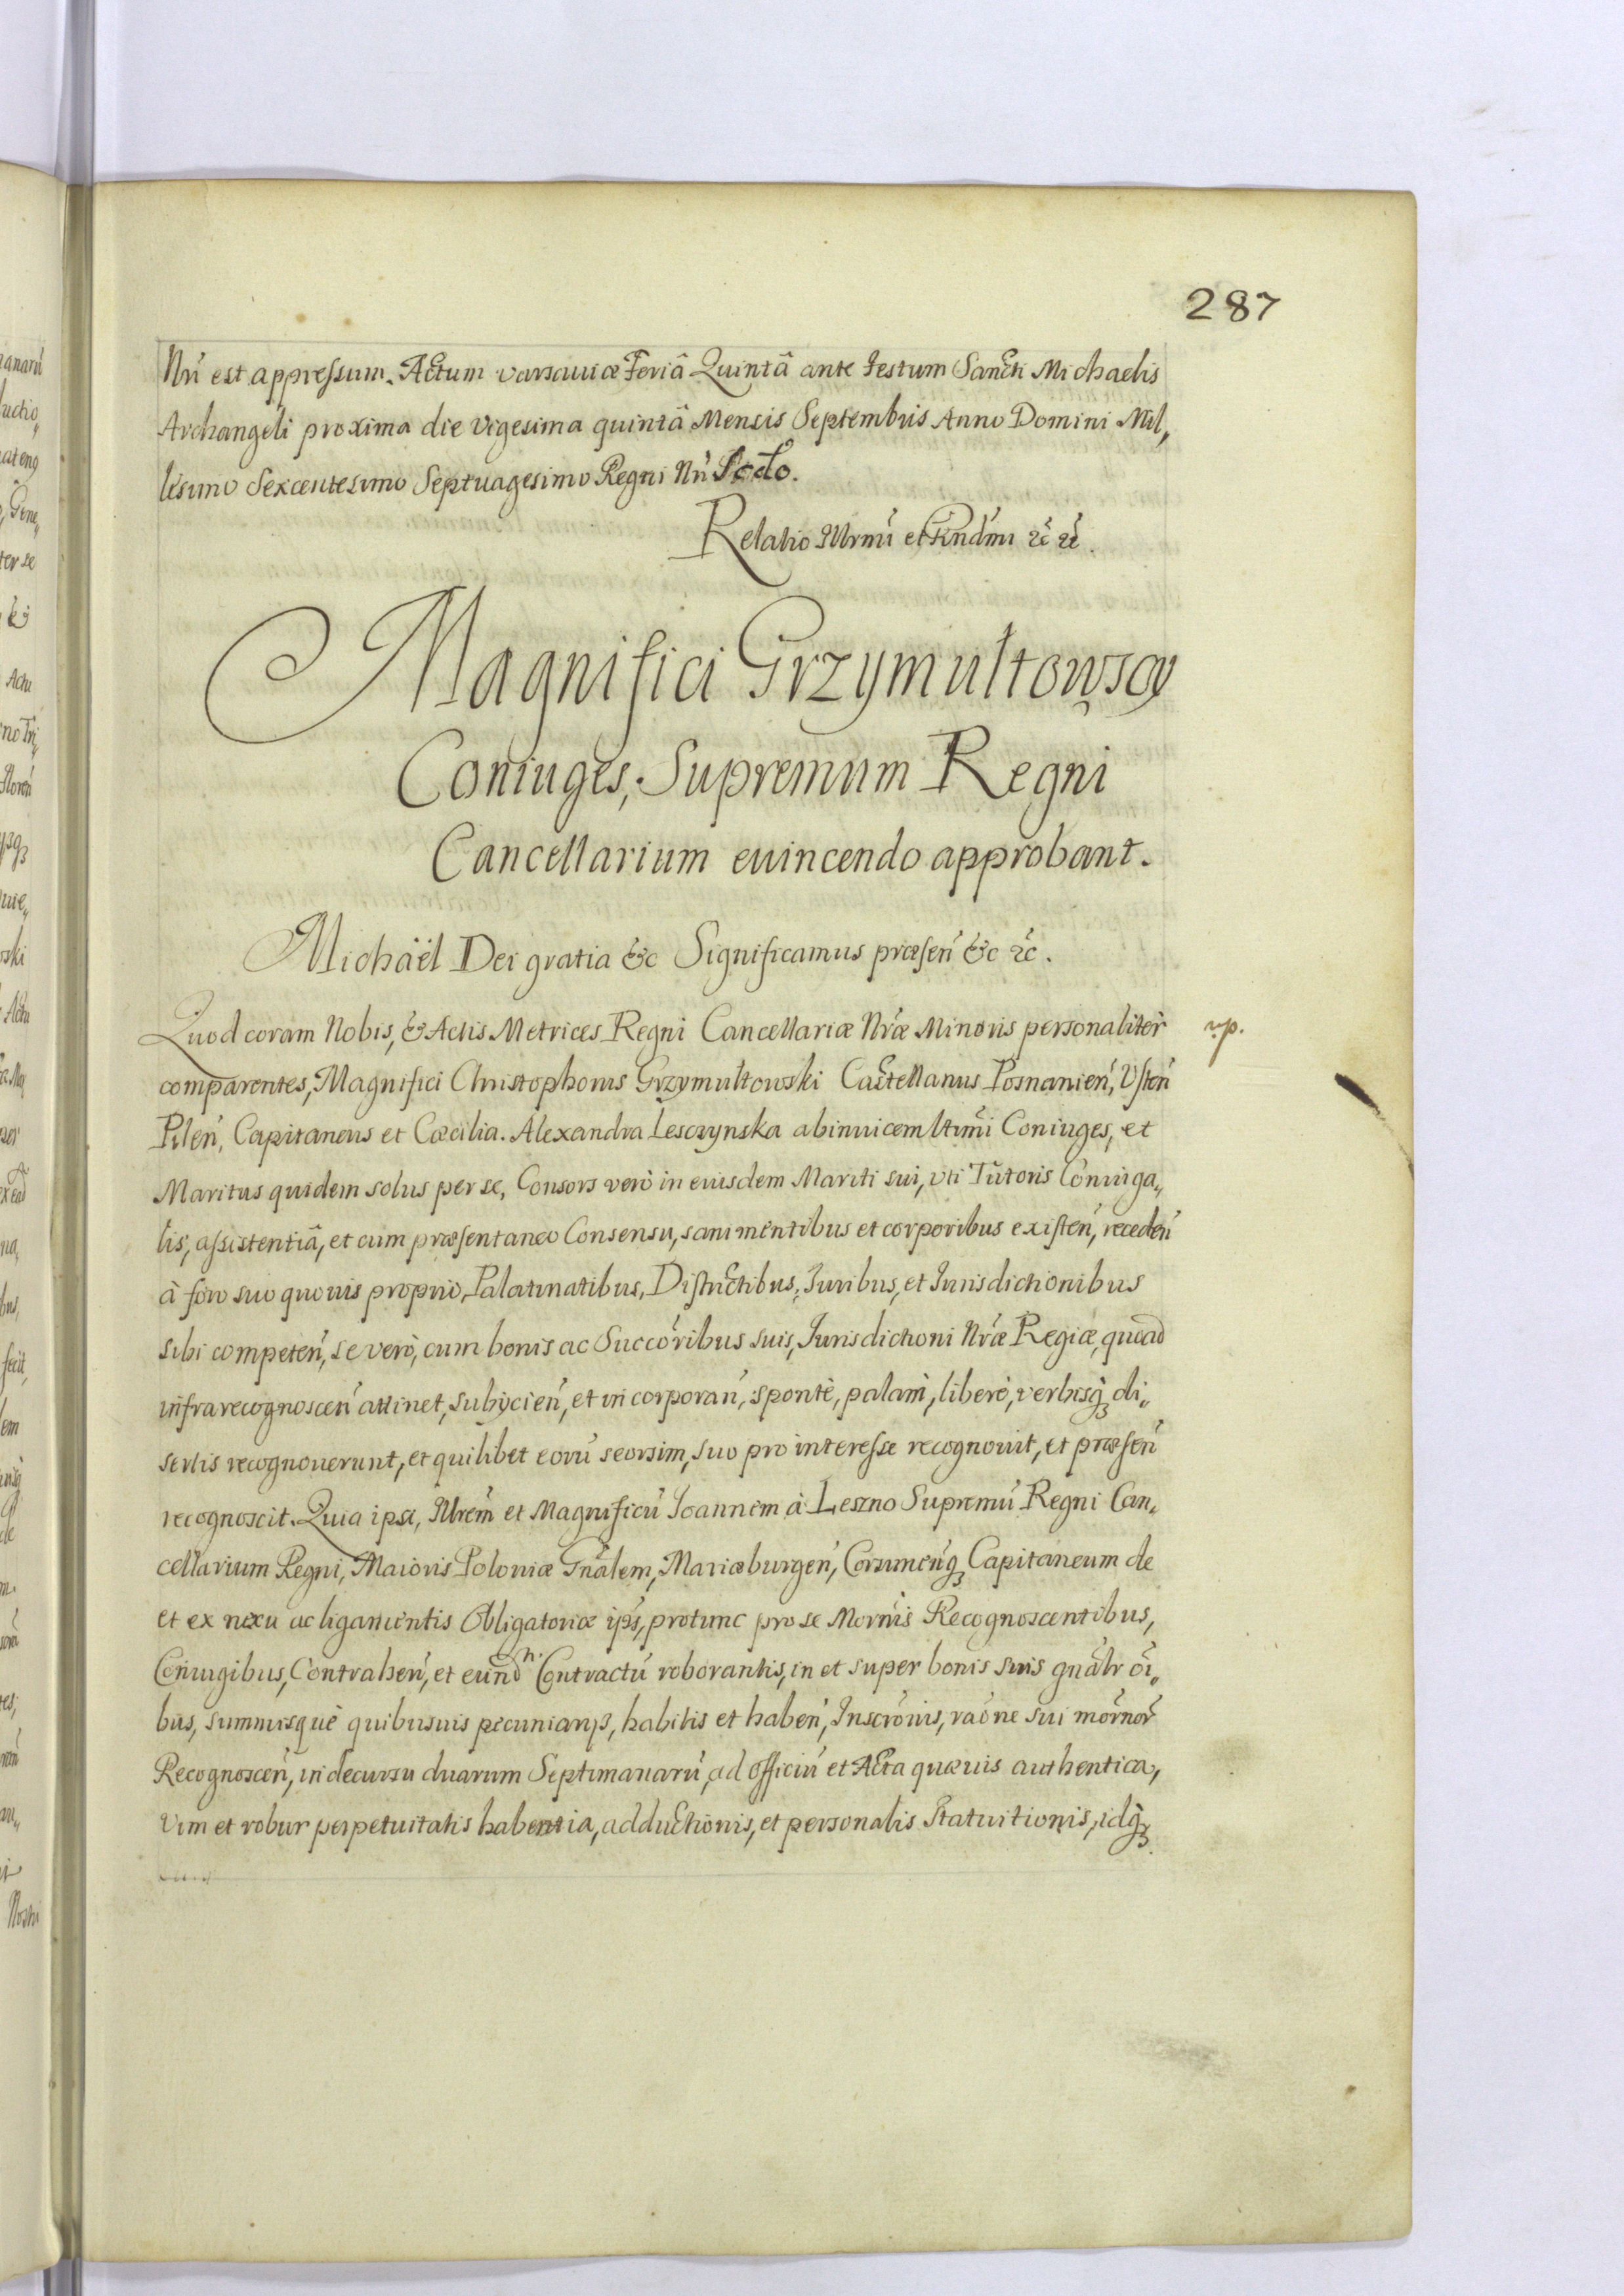 287
Nr̃i est appressum. Actum Varsaviæ Feriâ Quintâ ante Festum Sancti Michaelis
Archangeli proxima die Vigesima quintâ Mensis Septembris Anno Domini Mil„
lesimo Sexcentesimo Septuagesimo Regni Nr̃i Scdo.
Relatio Illrmi et Rndmi &c &c.
Magnifici Grzymultowscy
Coniuges, Supremum Regni
Cancellarium euincendo approbant.
Michaël Dei gratia &c Significamus præsen̄ &c &c.
Quod coram Nobis, & Actis Metrices Regni Cancellariæ Nr̃æ Minoris personaliter
comparentes, Magnifici Christophorus Grzymultowski Castellanus Posnanien̄, Usten̄
Pilen̄, Capitaneus et Cæcilia Alexandra Lesczynska abinuicem ltimi Coniuges, et
Maritus quidem solus per se, Consors verò in eiusdem Mariti sui, vti Tutoris Coniuga„
lis, assistentiâ, et cum præsentaneo Consensu, sani mentibus et corporibus existen̄, receden̄
à foro suo quouis proprio, Palatinatibus, Districtibus, Iuribus, et Iurisdictionibus
sibi competen̄, se verò, cum bonis ac Succoribus suis, Iurisdictioni Nr̃æ Regiæ, quoad
infrarecognoscen̄ attinet, subijcien̄, et incorporan̄, spontè, palam, liberè, verbisq̃ di„
sertis recognouerunt, et quilibet eorũ seorsim, suo pro interesse recognouit, et præsen̄
recognoscit. Quia ipsi, Illrem et Magnificũ Ioannem à Leszno Supremũ Regni Can„
cellarium Regni, Maioris Poloniæ Gñalem, Mariæburgen̄, Corsunenq̃ Capitaneum de
et ex nexu ac ligamentis Obligatoriæ ip̃s, protunc pro se Mornis Recognoscentibus,
Coniugibus, Contrahen̄, et eund̃ Contractũ roborantis, in et super bonis suis gñalr oĩ„
bus, summisquè quibusuis pecuniarijs, habitis et haben̄, Inscrõnis, raõne sui mõrnor̃
Recognoscen̄, in decursu duarum Septimanarũ, ad officiũ et Acta quæuis authentica,
Vim et robur perpetuitatis habentia, adductionis, et personalis Statuitionis, idq̃